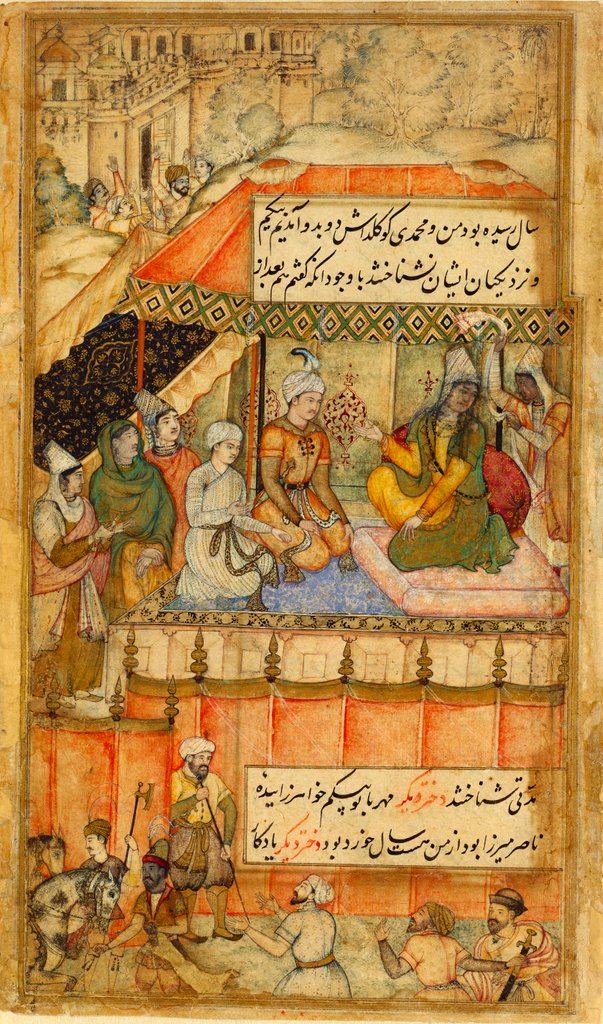 سال رسیده بود من و محمدی کوکلداش دوبدو آمدیم بیکیم
و نزدیکهان ایشان نشناختند با وجود آنکه گفتم هم بعد از
مدتی شناختند دختر دیگر مهربانو بیکیم خواهر زاییده
ناصر میرزا بود از من هست سال خورد بود و دختر دیگر یادکا